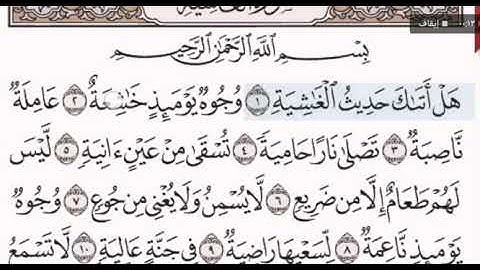 ٠٠:١٣ ■ إيقاف
سُورَةُ الْغَاشِيَةِ
بِسْمِ اللَّهِ الرَّحْمَٰنِ الرَّحِيمِ
هَلْ أَتَىٰكَ حَدِيثُ الْغَاشِيَةِ ١ وُجُوهٌ يَوْمَئِذٍ خَاشِعَةٌ ٢ عَامِلَةٌ
نَّاصِبَةٌ ٣ تَصْلَىٰ نَارًا حَامِيَةً ٤ تُسْقَىٰ مِنْ عَيْنٍ ءَانِيَةٍ ٥ لَّيْسَ
لَهُمْ طَعَامٌ إِلَّا مِن ضَرِيعٍ ٦ لَّا يُسْمِنُ وَلَا يُغْنِي مِن جُوعٍ ٧ وُجُوهٌ
يَوْمَئِذٍ نَّاعِمَةٌ ٨ لِّسَعْيِهَا رَاضِيَةٌ ٩ فِي جَنَّةٍ عَالِيَةٍ ١٠ لَّا تَسْمَعُ